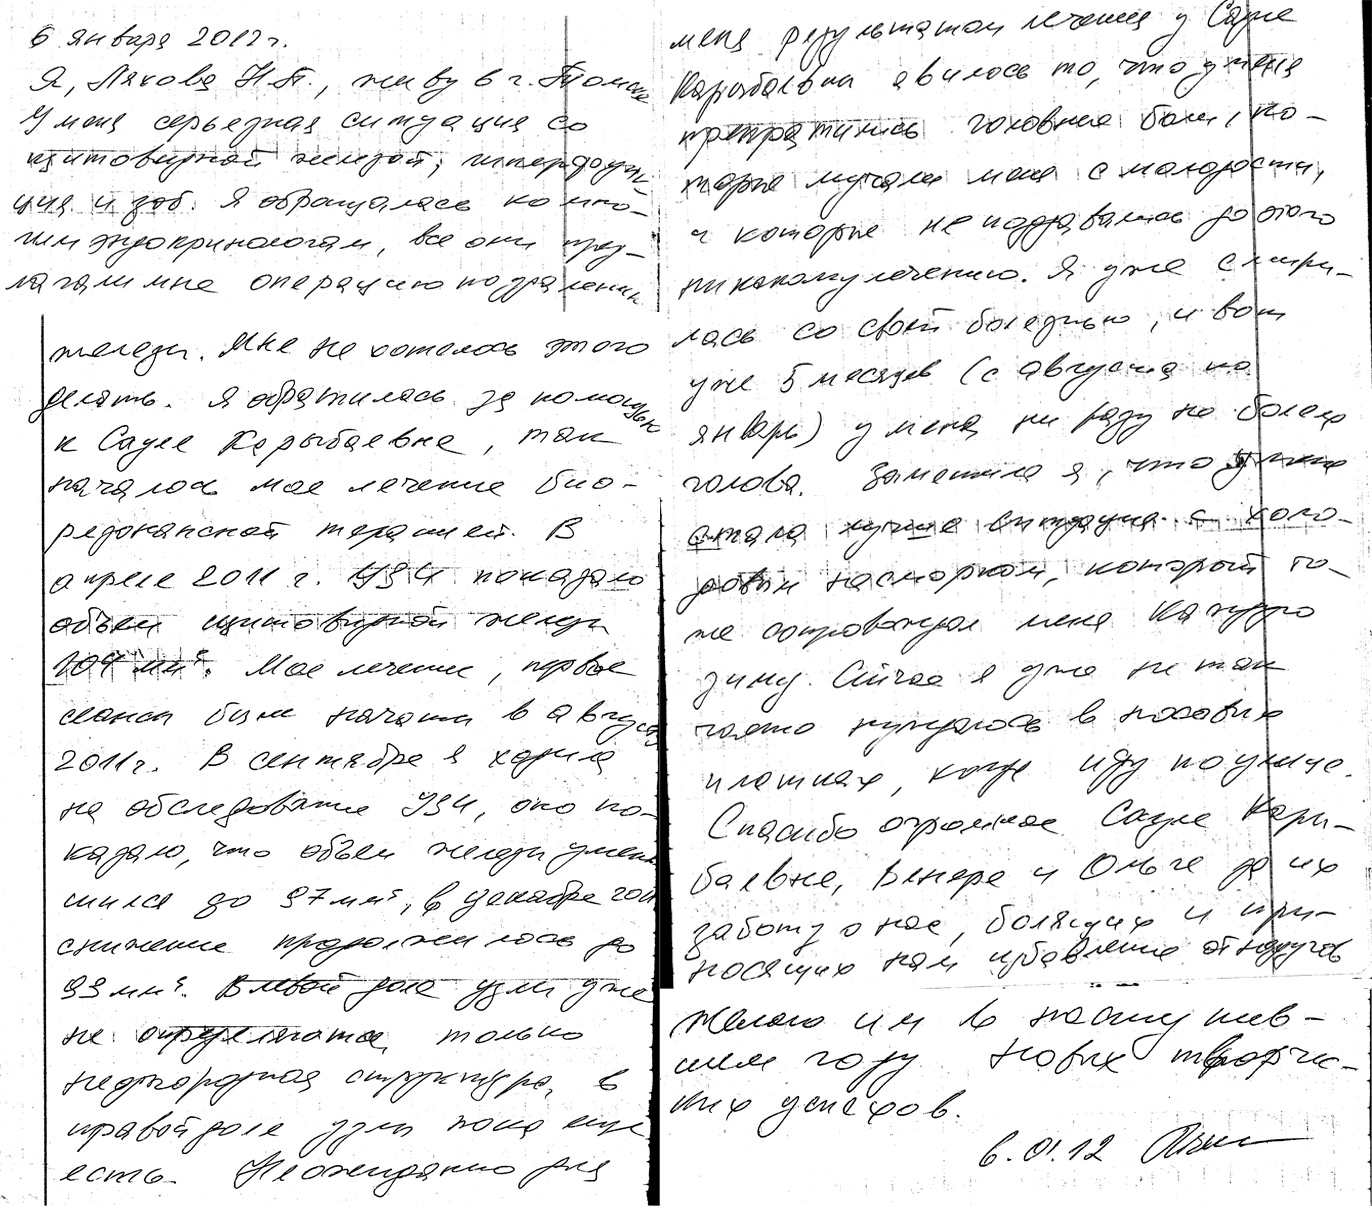 6 января 2012 г.
Я, Ляхова Н.П., живу в г. Томске
У меня серьезная ситуация со
щитовидной железой, гиперфунк-
ция и зоб. Я обращалась ко мно-
гим эндокринологам, все они пред-
лагали мне операцию по удалению
железы. Мне не хотелось этого
делать. Я обратилась за помощью
к Сауле Карыбаевне, так
началось мое лечение био-
резонансной терапией. В
апреле 2011 г. УЗИ показало
объем щитовидной железы
104 мм³. Мое лечение, первые
сеансы были начаты в августе
2011г. В сентябре я ходила
на обследование УЗИ, оно по-
казало, что объем железы умень
шился до 97 мм³, в декабре 2011
снижение продолжилось до
93 мм³. В левой доле узлы уже
не определяются, только
неоднородная структура, в
правой доле узлы пока еще
есть. Неожиданно для
меня результатом лечения у Сауле
Карыбаевны явилось то, что у меня
прекратились головные боли, ко-
торые мучали меня с молодости,
и которые не поддавались до этого
никакому лечению. Я уже смири-
лась со своей болезнью, и вот
уже 5 месяцев (с августа по
январь) у меня ни разу не болела
голова. Заметила я, что у меня
стала лучше ситуация с холо-
довым насморком, который то-
же сопровождал меня каждую
зиму. Сейчас я уже не так
часто нуждаюсь в носовых
платках, когда иду по улице.
Спасибо огромное Сауле Кары-
баевне, Венере и Ольге за их
заботу о нас, болящих и при-
носящих нам избавление от недугов
Желаю им в наступив-
шем году новых творчес-
ких успехов.
6.01.12